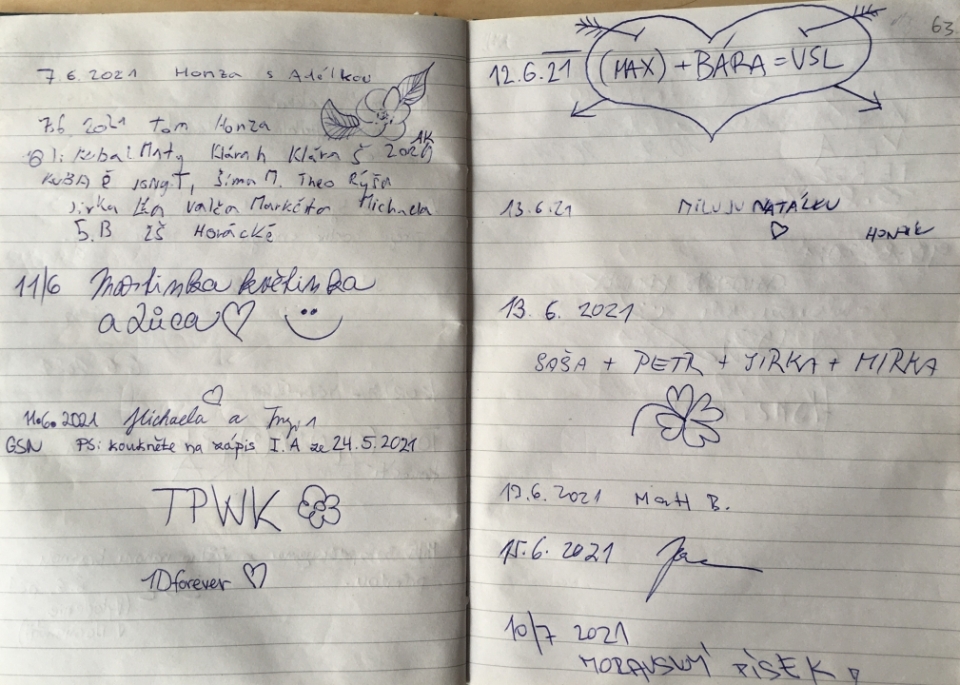 7.6.2021 Honza s Adélkou
7.6. 2021 Tom Honza
AK
Maty Klára h Klára š 2021
KUBA Šima M. Theo Rýša
Jirka Valča Markéta Michaela
5.B ZŠ Horácké
11/6 Martinka květinka
a Lůca
11.6.2021 Michaela a
GSN PS: koukněte na zápis I.A ze 24.5.2021
TPWK
1D forever
63
12.6.21 (MAX) + BÁRA = VSL
13.6.21 MILUJU NATÁLKU
HONZIK
13. 6. 2021
SAŠA + PETR + JIRKA + MIRKA
13.6.2021 Matt B.
15.6. 2021
10/7 2021
MORAVSKÝ PÍSEK